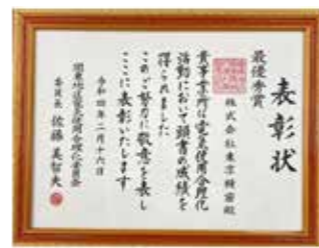 表彰状
最優秀賞
株式会社東京精密殿
貴事業所は電気使用合理化
活動において頭書の成績を
得られました
このご努力に敬意を表し
ここに表彰いたします
令和四年二月十六日
関東地区電気使用合理化委員会
委員長 佐藤 美智夫